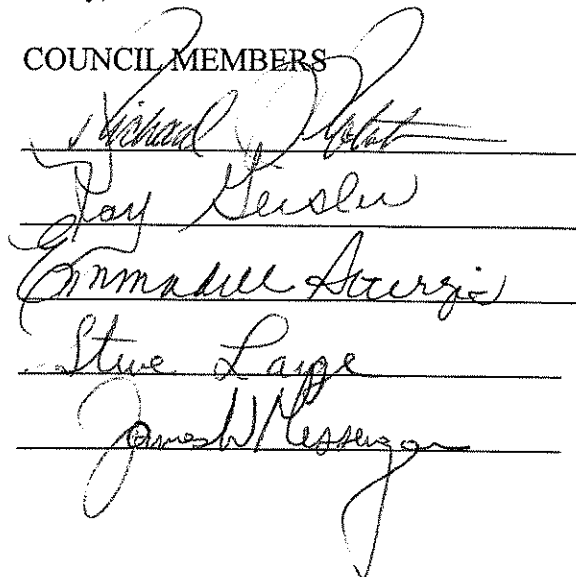 COUNCIL MEMBERS
Richard
Ray Geisler
Emmadell Sturgis
Steve Lange
James W Messenger